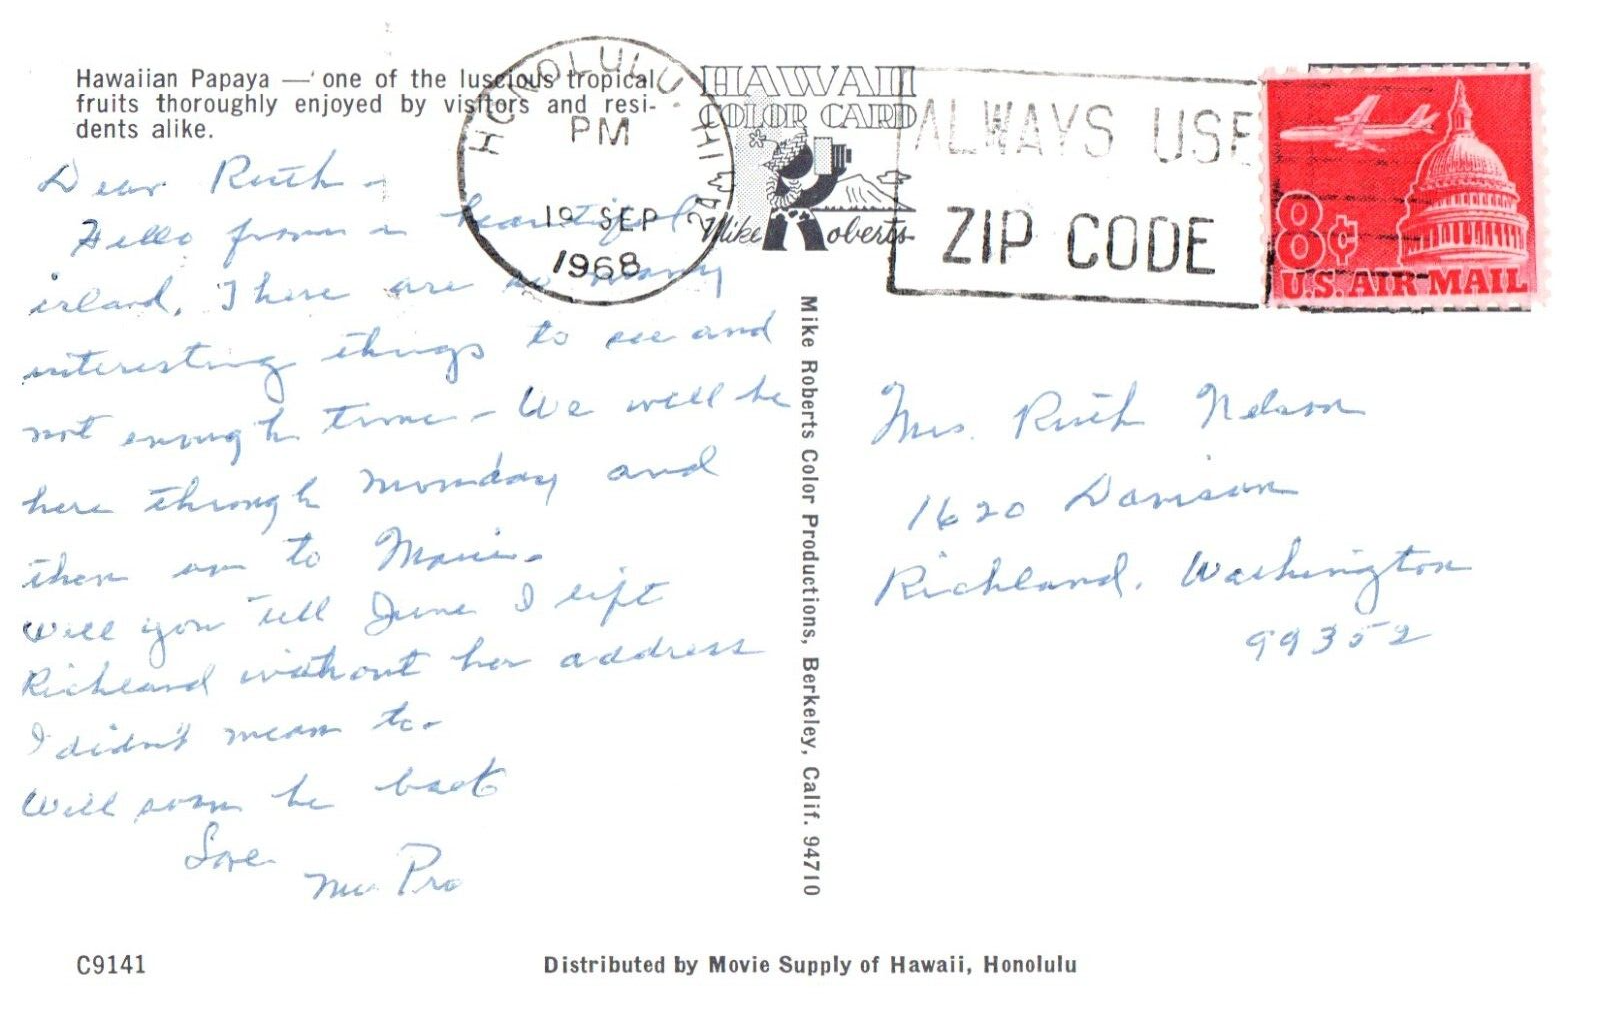 Hawaiian Papaya — one of the luscious tropical
fruits thoroughly enjoyed by visitors and resi-
dents alike.
HONOLULU, HI
PM
19 SEP
1968
HAWAII
COLOR CARD
Mike Roberts
ALWAYS USE
ZIP CODE
8¢
U.S. AIR MAIL
Dear Ruth -
Hello from a beautiful
island. There are so many
interesting things to see and
not enough time - We will be
here through Monday and
then on to Maui -
Will you tell June I left
Richland without her address
I didn't mean to -
Will soon be back
Love
Mike Roberts Color Productions, Berkeley, Calif. 94710
Mrs. Ruth Nelson
1620 Davison
Richland, Washington
99352
C9141
Distributed by Movie Supply of Hawaii, Honolulu